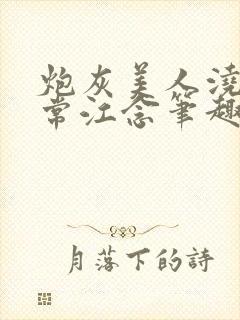 炮灰美人澆
常江念筆趣
月落下的詩